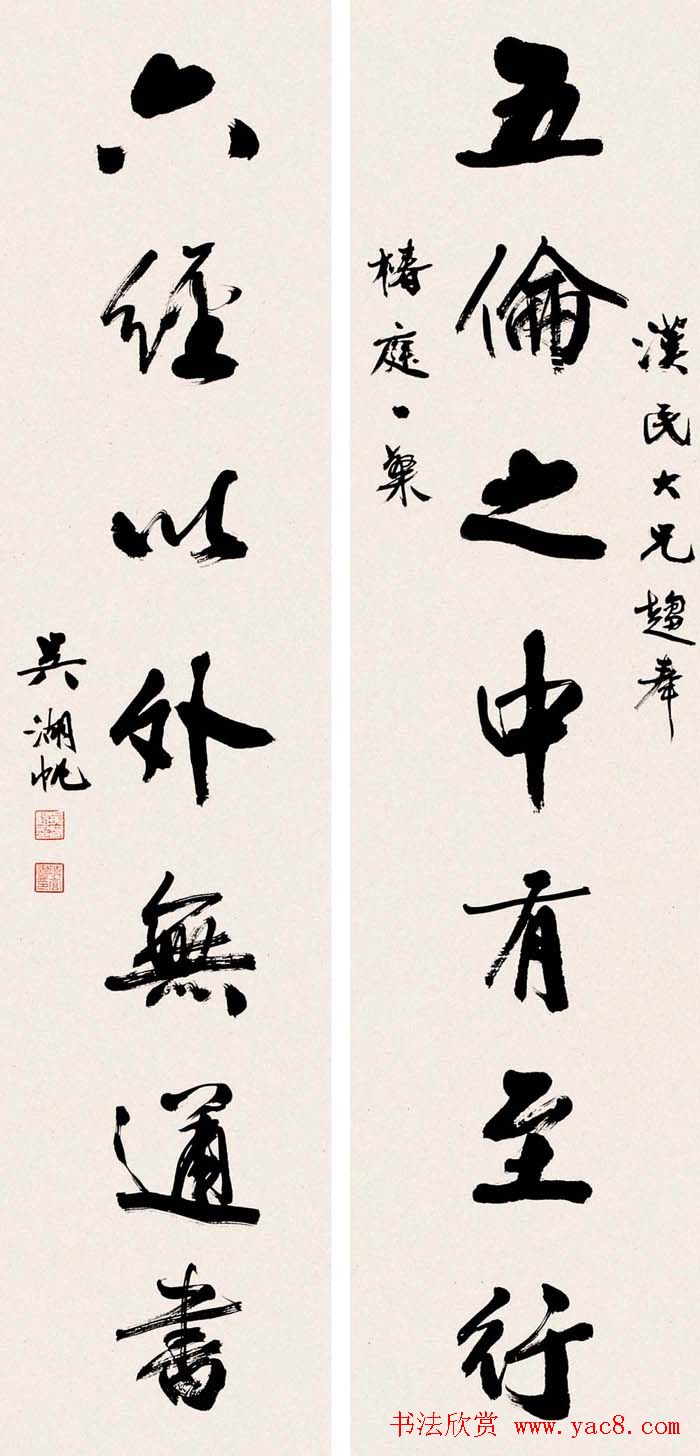 漢民大兄趨奉
五倫之中有至行
椿庭一粲
六經以外無通書
吳湖帆
书法欣赏 www.yac8.com